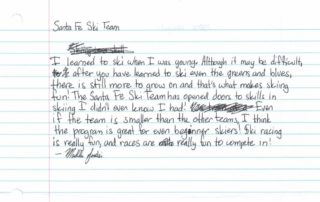 Santa Fe Ski Team
I learned to ski when I was young. Although it may be difficult,
after you have learned to ski even the greens and blues,
there is still more to grow on and that's what makes skiing
fun! The Santa Fe Ski Team has opened doors to skills in
skiing I didn't even know I had! Even
if the team is smaller than the other teams, I think
the program is great for even beginner skiers! Ski racing
is really fun, and races are really fun to compete in!